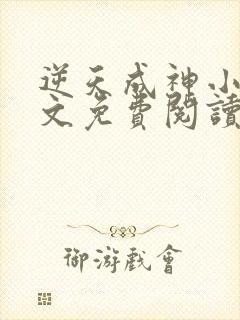 逆天成神小
文免費閱讀
御游戲會